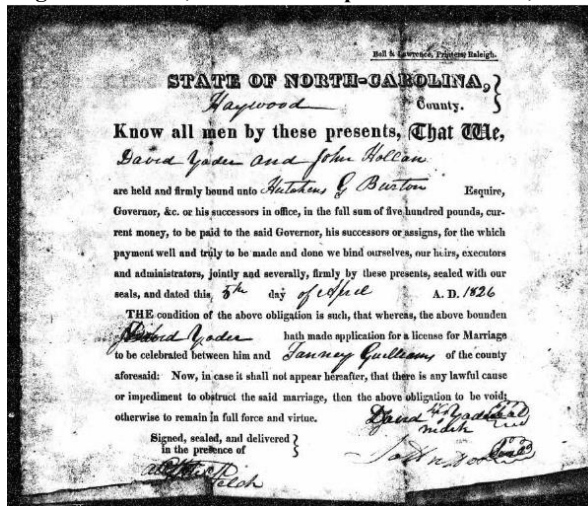 Bell & Lawrence, Printers, Raleigh.
STATE OF NORTH-CAROLINA,
Haywood County.
Know all men by these presents, That We,
David Yader and John Hollan
are held and firmly bound unto Hutchens G Burton Esquire,
Governor, &c. or his successors in office, in the full sum of five hundred pounds, cur-
rent money, to be paid to the said Governor, his successors or assigns, for the which
payment well and truly to be made and done we bind ourselves, our heirs, executors
and administrators, jointly and severally, firmly by these presents, sealed with our
seals, and dated this, 5th day of April A. D. 1826
THE condition of the above obligation is such, that whereas, the above bounden
David Yader hath made application for a license for Marriage
to be celebrated between him and Fanney Guilliams of the county
aforesaid: Now, in case it shall not appear hereafter, that there is any lawful cause
or impediment to obstruct the said marriage, then the above obligation to be void;
otherwise to remain in full force and virtue.
David Yader
mark
Signed, sealed, and delivered
in the presence of
John